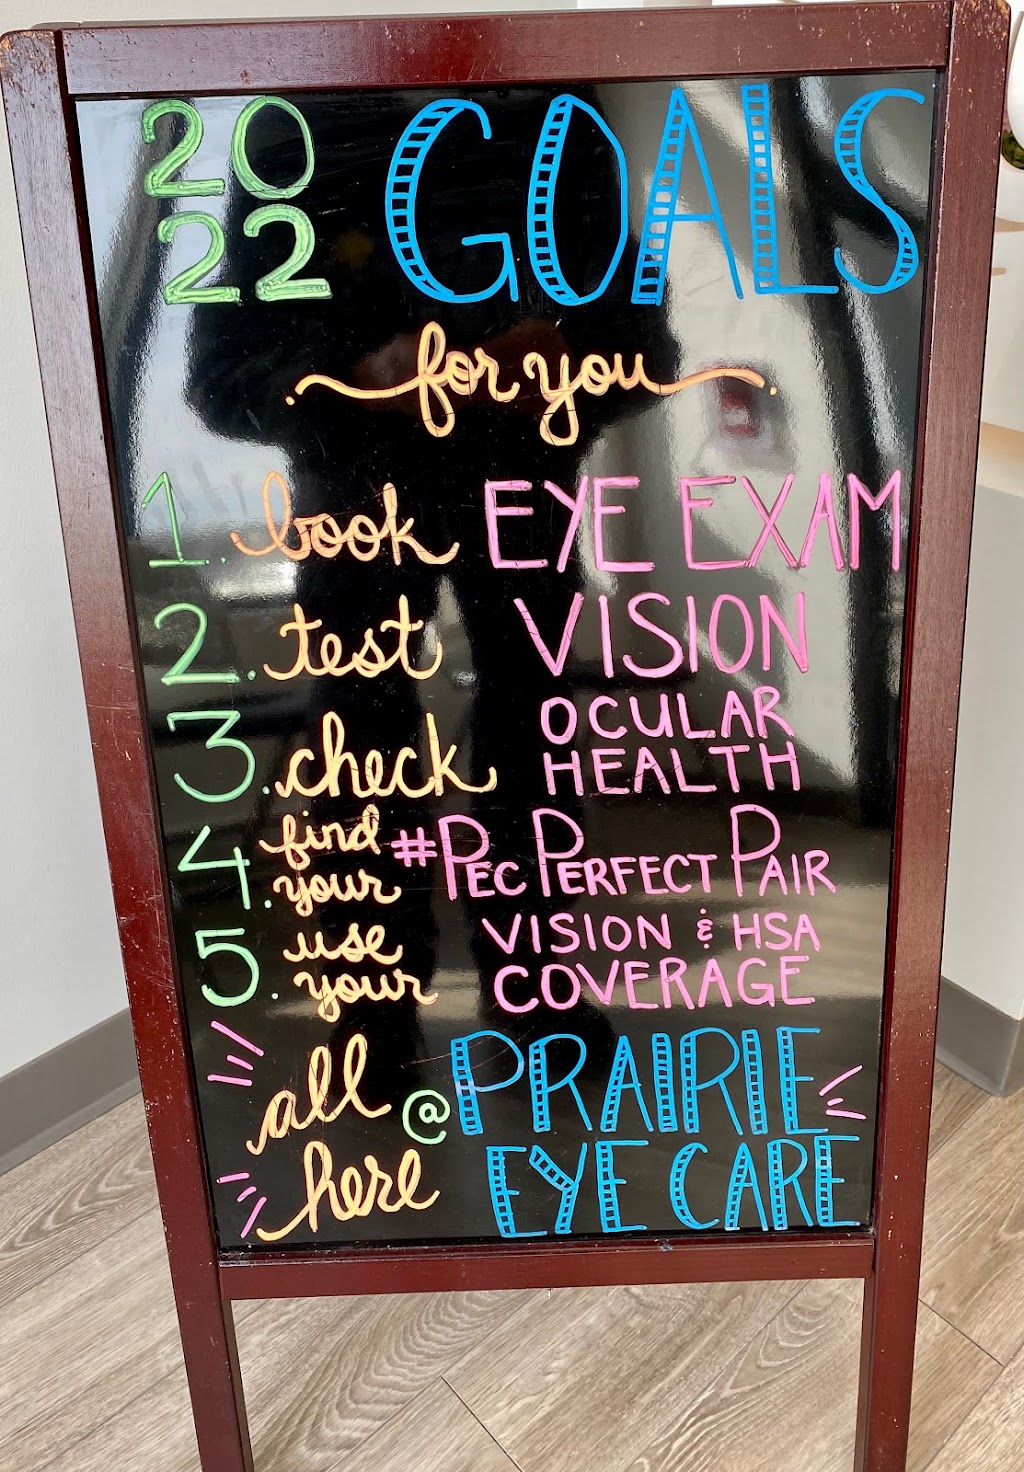 2022 GOALS
for you
1. book EYE EXAM
2. test VISION
3. check OCULAR HEALTH
4. find your #PEC PERFECT PAIR
5. use your VISION & HSA COVERAGE
all here @ PRAIRIE EYE CARE